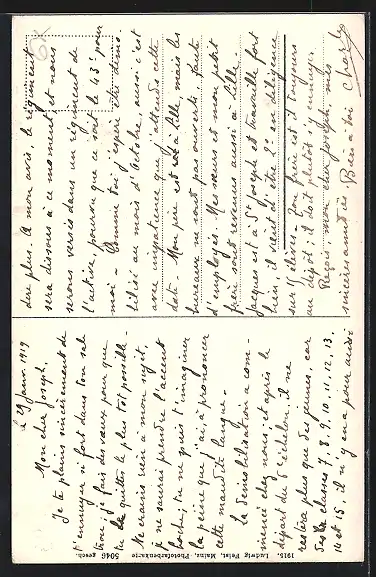 le 29 Janv. 1919
Mon cher Joseph,
Je te plains sincèrement de
t'ennuyer si fort dans ton
; je fais des vœux pour que
tu la quittes le plus tôt possible.
Ne crains rien à mon sujet,
je ne saurai prendre l'accent
boche; tu ne peux t'imaginer
la peine que j'ai à prononcer
cette maudite langue.
La démobilisation a com-
mencé chez nous; et après le
départ du 5e échelon, il ne
restera plus que des jeunes, car
des classes 7, 8, 9, 10, 11, 12, 13,
14 et 15, il n'y en a pour ainsi
dire plus. A mon avis, le régiment
sera dissous à ce moment et nous
serons versés dans un régiment de
l'active, pourvu que ce soit le 43e pour
moi. Comme toi j'espère être démo-
bilisé au mois d'Octobre, aussi c'est
avec impatience que j'attends cette
date. Mon père est à Lille, mais les
bureaux ne sont pas ouverts, faute
d'employés. Mes sœurs et mon petit
frère sont revenus aussi à Lille.
Jacques est à St Joseph et travaille fort
bien, il vient d'être 2e en diligence
sur élèves. Ton frère est-il toujours
au dépôt; il doit plutôt s'y ennuyer.
Reçois, mon cher Joseph, mes
sincères amitiés. Bien à toi
Charles
1915. Ludwig Feist, Mainz. Photofarbenkarte 5046 gesch.